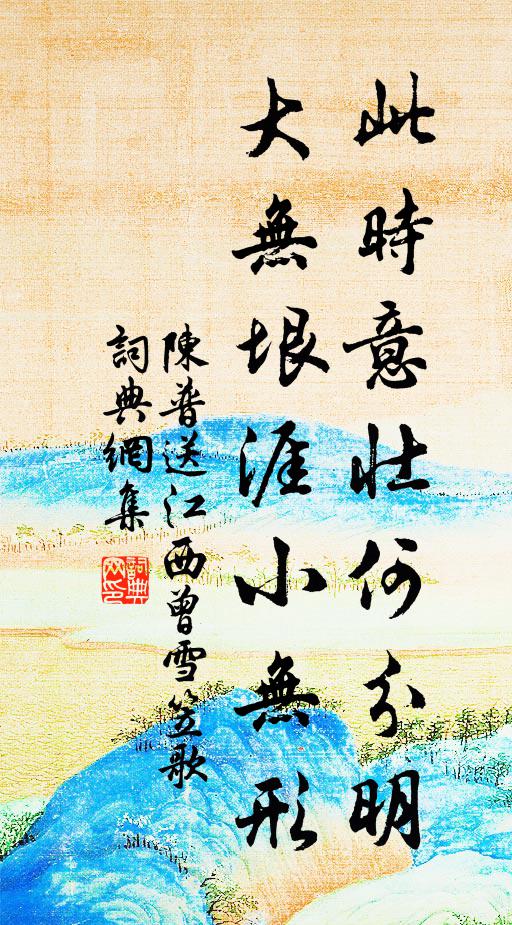 此時意壯何分明
大無垠涯小無形
陳普送江西曾雪笠歌
詞典網集
詞典
网印